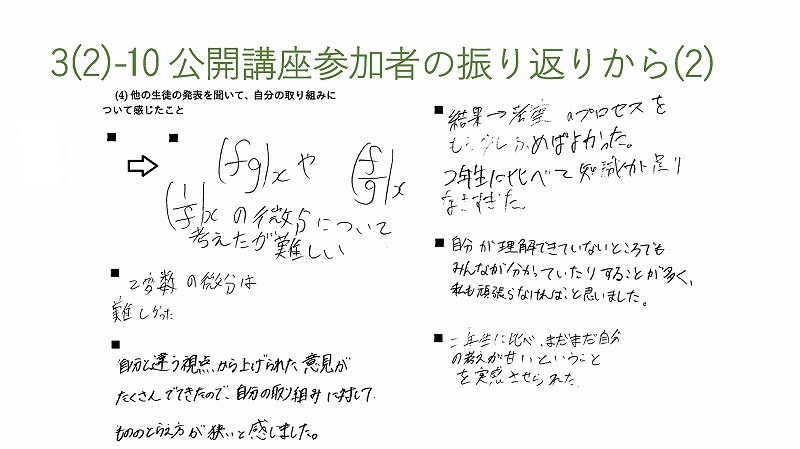 3(2)-10 公開講座参加者の振り返りから(2)
(4) 他の生徒の発表を聞いて、自分の取り組みに
ついて感じたこと
⇨ (fg)x や (f/g)x
(1/f)x の微分について
考えたが難しい
2変数の微分は
難しかった
自分と違う視点から上げられた意見が
たくさんでてきたので、自分の取り組みに対して
もののとらえ方が狭いと感じました。
結果→考察のプロセスを
もう少しふめばよかった。
2年生に比べて知識が足り
なさすぎた。
自分が理解できていないところでも
みんなが分かっていたりすることが多く、
私も頑張らなければと思いました。
二年生に比べ、まだまだ自分
の考えが甘いということ
を実感させられた